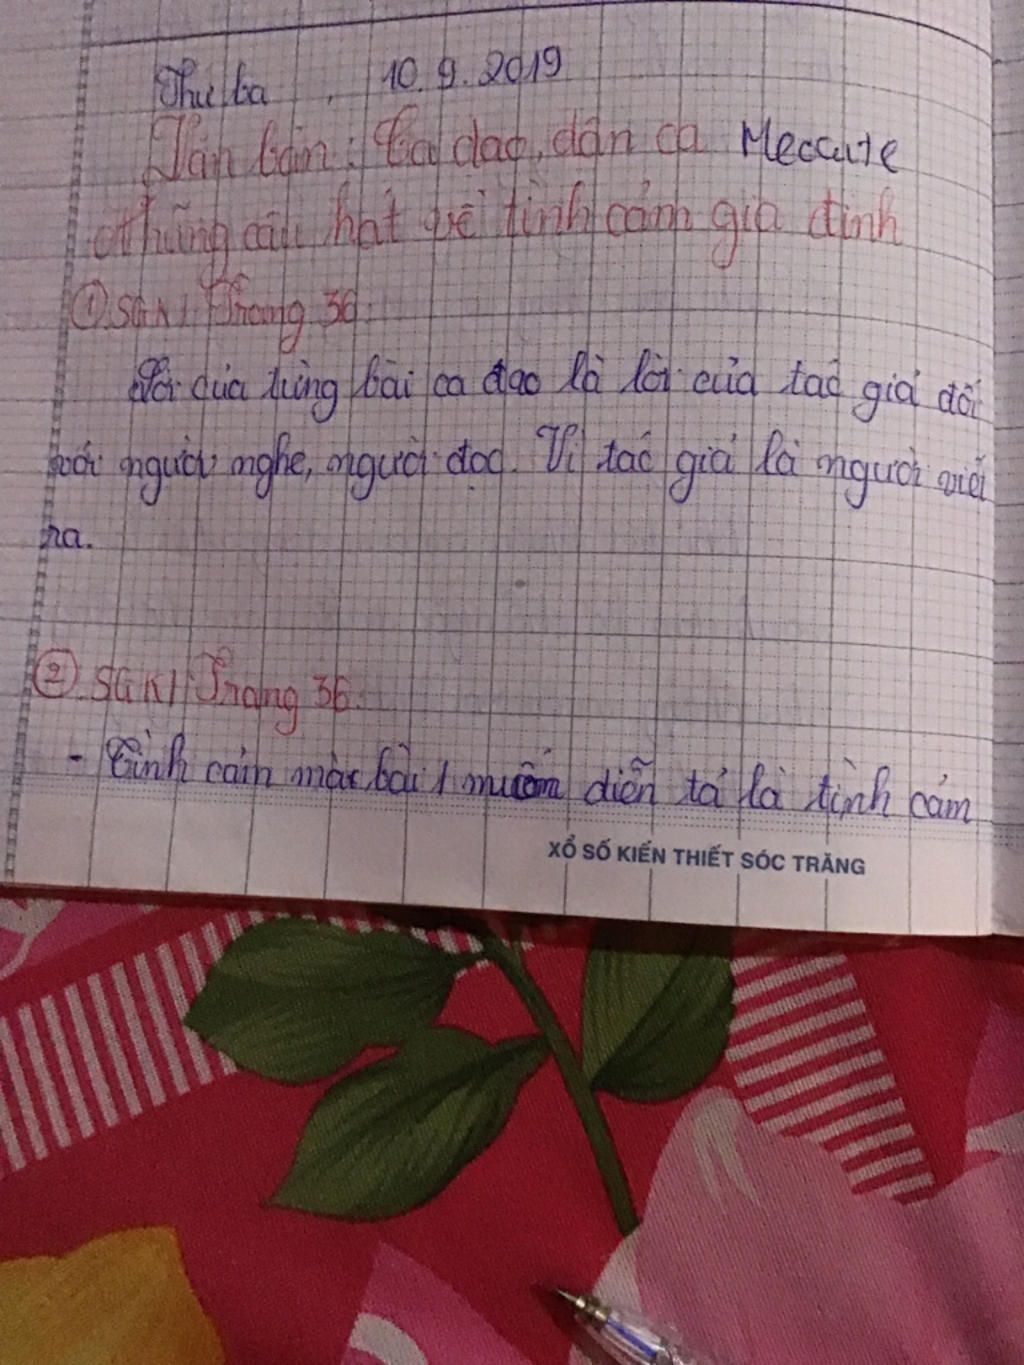 Thứ ba , 10.9.2019
Văn bản: Ca dao, dân ca Meocute
Những câu hát về tình cảm gia đình
① SGK/ Trang 36.
Lời của từng bài ca dao là lời của tác giả đối
với người nghe, người đọc. Vì tác giả là người viết
ra.
② SGK/ Trang 36.
- Tình cảm mà bài 1 muốn diễn tả là tình cảm
XỔ SỐ KIẾN THIẾT SÓC TRĂNG